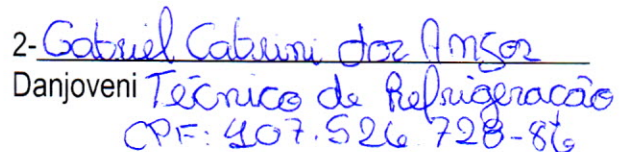 2- Gabriel Cabrini dos Anjos
Danjoveni Técnico de Refrigeração
CPF: 407.526.728-86